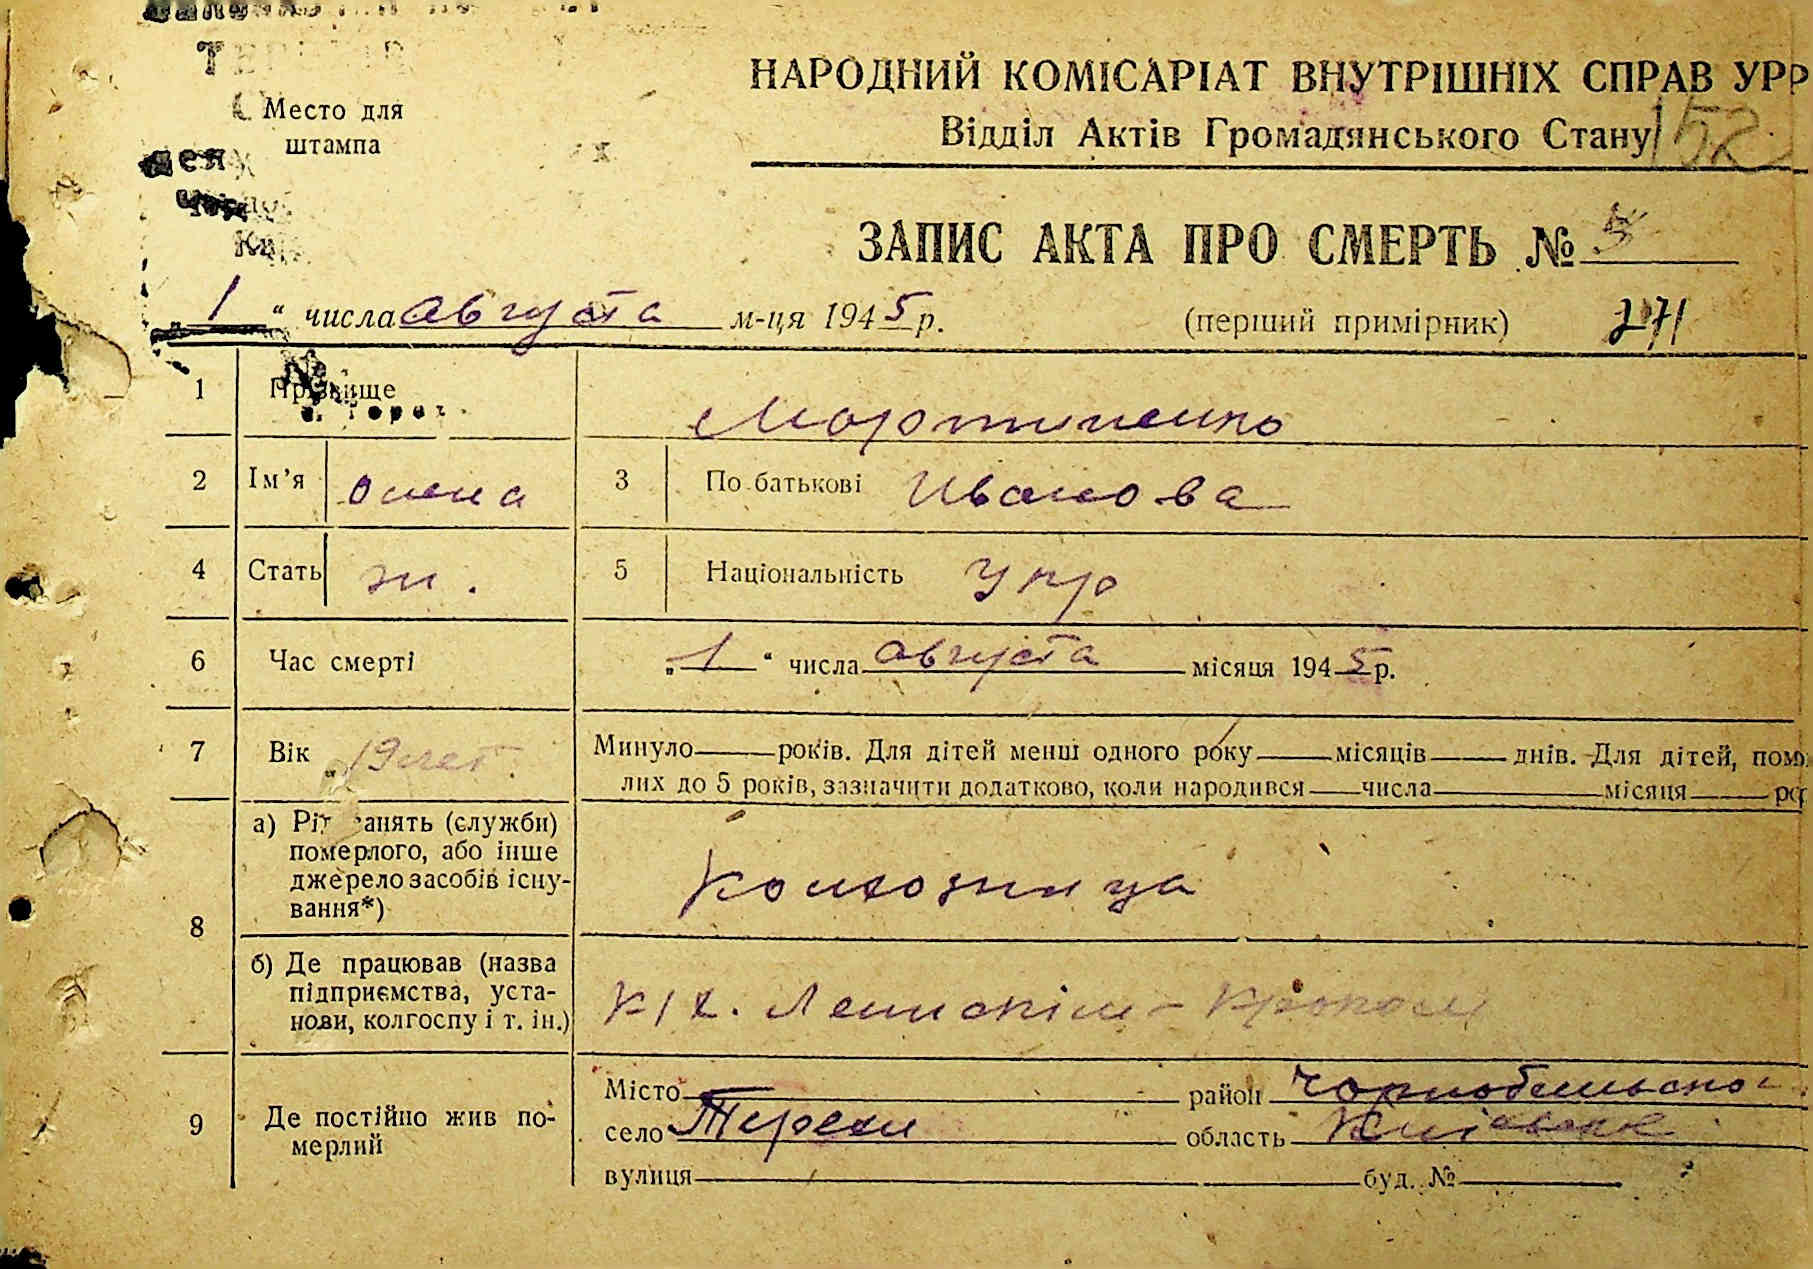 Место для
штампа
НАРОДНИЙ КОМІСАРІАТ ВНУТРІШНІХ СПРАВ УРР
Відділ Актів Громадянського Стану
152
ЗАПИС АКТА ПРО СМЕРТЬ № 5
„ 1 “ числа августа м-ця 1945 р.
(перший примірник) 271
1 Прізвище Мортиненко
2 Ім’я Олена 3 По батькові Ивонова
4 Стать ж. 5 Національність Укр
6 Час смерті „ 1 “ числа августа місяця 1945 р.
7 Вік 19 лет. Минуло — років. Для дітей менш одного року — місяців — днів. Для дітей, пом
лих до 5 років, зазначити додатково, коли народився — числа — місяця — ро
8 а) Рід занять (служби)
померлого, або інше
джерело засобів існу-
вання*)
Колхозница
б) Де працював (назва
підприємства, уста-
нови, колгоспу і т. ін.)
К/х.
9 Де постійно жив по-
мерлий
Місто район Чорнобельско
село Терехи область Київская
вулиця буд. №